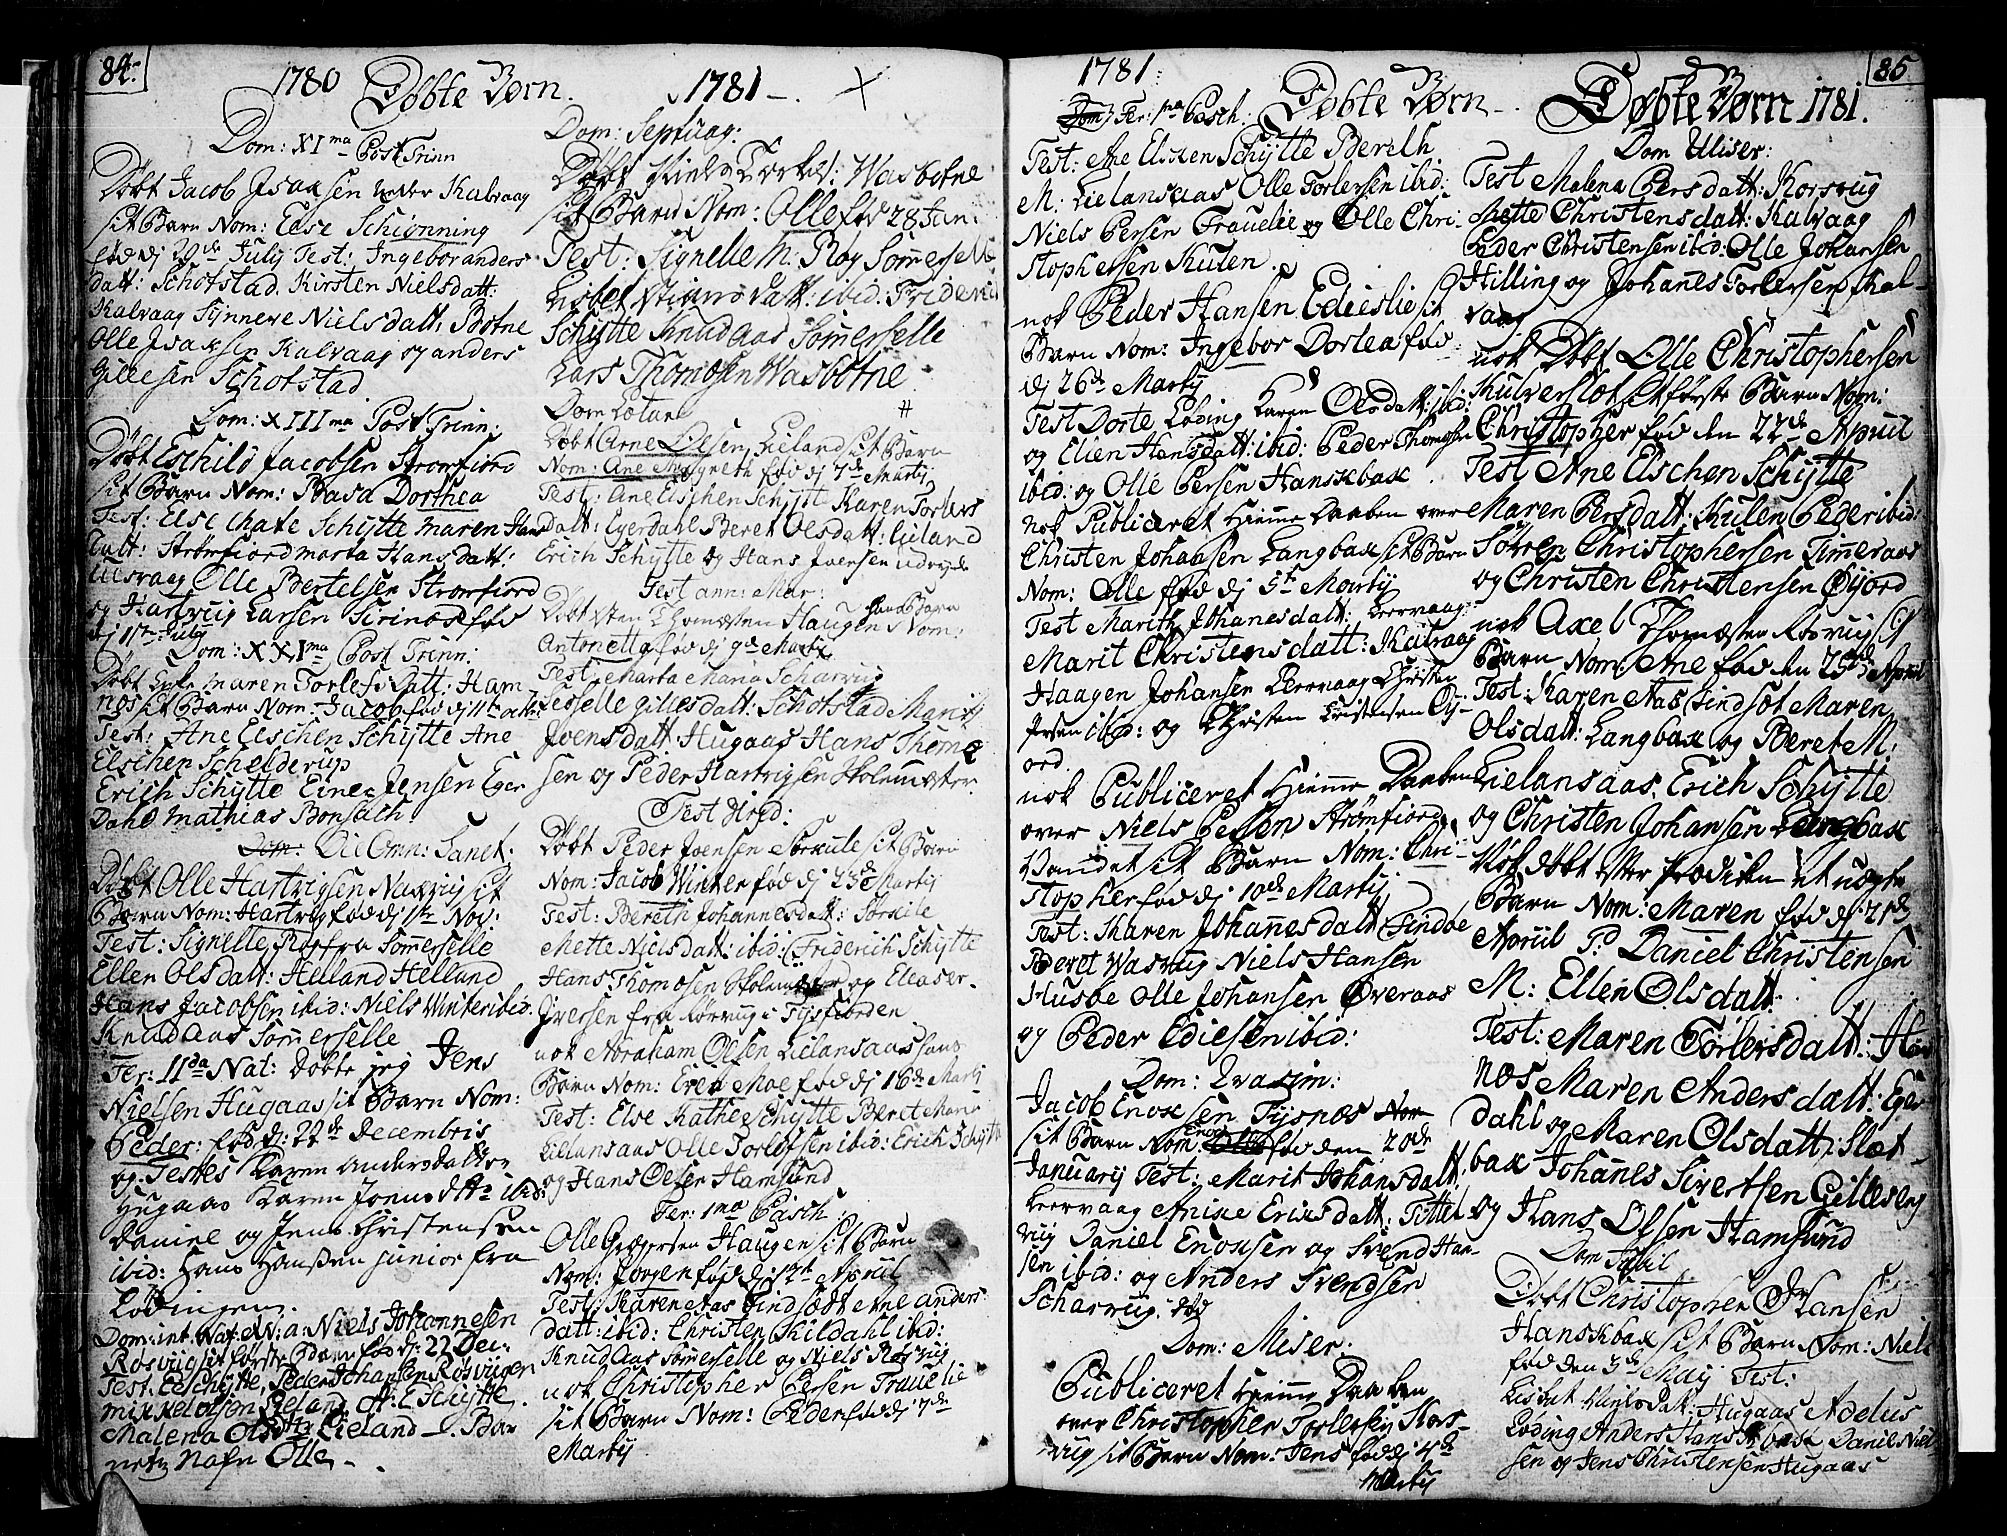 84.
1780 Døbte Børn.
Dom: XIma Post Trinn
Døbt Jacob Isaksen Kalvaag
sit Barn Nom: Else Schiønning
fød dj 29de July Test: Ingebor anders
datt: Schofstad. Kirsten Nielsdatt:
Kalvaag Synneve Nielsdatt. Botne
Olle Isaksen Kalvaag og anders
Gillesen Schofstad
Dom: XIIIma Post Trinn:
Døbt Eschild Jacobsen Strømfiord
sit Barn Nom: Basa Dorthea
Test: Else Chate Schytte Maren Hans
datt: Strømfiord marta Hansdatt:
Ulsvaag Olle Bertelsen Strømfiord
og Hartvig Larsen fød
dj 1ste July
Dom: XXIma Post Trinn:
Døbt Maren Torlefsdatt: Ham
nøs sit Barn Nom. Jacob fød dj 11te octbr
Test: Ane Elschen Schytte Ane
Elschen Schelderup
Erich Schytte Einer Jensen Eger
Dahl Mathias Bonsach
Die Omn: Sanct.
Døbt Olle Hartvigsen Naxvig sit
Barn Nom: Hartvig fød dj 1ste Nov:
Test: Signelle Røy fra Sommerselle
Ellen Olsdatt: Helland Helland
Hans Jacobsen ibid: Niels Winter ibid.
Knud Aas Sommerselle
Fer: IIda Nat: Døbte jeg Jens
Nielsen Hugaas sit Barn Nom:
Peder: fød d: 22de Decembris
og Testes Karen Andersdatter
Hugaas Karen Joensdtr ibid:
Daniel og Jens Christensen
ibid: Hans Hansen junior fra
Lødingen.
Dom: int. Nat. & N: a: Niels Johannesen
Røsviig sit første Barn fød d: 22 Dec:
Test. E Schytte, Peder Johansen Røsviigen
Mikkel Olsen Kieland A: E Schytte.
Malena Olsdtr Lieland. Bar
nets Nafn Olle.
1781
Dom: Septuag:
Døbt Niels Torkel: Wasbotne
sit Barn Nom: Olle fød 28 Jan:
Test: Signelle M: Røy Sommerselle
Lisbet ibid: Friderich
Schytte Knud Aas Sommerselle
Lars Thomesen Wasbotne
Dom Lætare
Døbt Arne Olsen Lieland sit Barn
Nom: Ane Margreta fød dj 7de Martij
Test: Ane Elschen Schytte Karen Torlers
datt: Egerdahl Beret Olsdatt: Lieland
Erich Schytte og Hans Joensen
Fest ann: Mar:
Døbt Sten Thomesen Haugen hans Barn Nom:
Antonetta fød dj 9de Martij
Test. Marta Maria Scharvig
Sesselle Gillesdatt: Schofstad Marit
Joensdatt: Hugaas Hans Thome
sen og Peder Hartvigsen Skolemester
Fest Virid:
Døbt Peder Joensen Sørkule sit Barn
Nom: Jacob Winter fød dj 23de Martij
Test: Bereth Johannesdatt: Sørkile
Mette Nielsdatt: ibid: Friderich Schytte
Hans Thomesen Skolemester og Eleaser
Iversen fra Kørvig i Tysfiorden
nok Abraham Olsen Lielansaas hans
Barn Nom: Erich Moe fød dj 16de Martij
Test: Else Kathe Schytte Beret Mons
Lielansaas Olle Torlefsen ibid: Erich Schytte
og Hans Olsen Hamsund
Fer: 1ma Pasch:
Olle Gregersen Haugen sit Barn
Nom: Jørgen fød dj 12te Apriil
Test: Karen Aas Findsæt Ane Anders
datt: ibid: Christen Kildahl ibid:
Knud Aas Sommerselle og Niels Røsvig
nok Christopher Persen Trauelie
sit Barn Nom: Peder fød dj 7de
Martij
1781:
Døbte Børn.
Dom: Fer: 1ma Pasch:
Test: Ane Elsken Schytte Bereth
M: Lielansaas Olle Torlefsen ibid:
Niels Persen Trauelie og Olle Chri
stophersen Kulen.
nok Peder Hansen Edieslie sit
Barn Nom: Ingebor Dortea fød
dj 26de Martij
Test Dorte Løding Karen Olsdatt: ibid:
og Elien Hansdatt: ibid: Peder Thomesen
ibid: og Olle Persen Hanskbax.
nok Publiceret Hiemme Daaben over
Christen Johansen Langbax sit Barn
Nom: Olle fød dj 5te Martij
Test Marith Johanesdatt: Leervaag:
Marit Christensdatt: Kalvaag
Haagen Johansen Leervaag Christen
ibid: og Christen Kristensen Øj
ord
nok Publiceret Hiemme Daaben
over Niels Persen Strømfiord
Vandet sit Barn Nom: Chri
stopher fød dj 10de Martij
Test: Karen Johanesdatt Findøe
Beret Wasvig Niels Hansen
Husbe Olle Johansen Øveraas
og Peder Ediesen ibid:
Dom: Qvasim:
Jacob Enoksen Tysnæs
sit Barn Nom: Enok fød den 20de
Januarij Test: Marit Johansdatt.
Leervaag Anixe Eriksdatt: Tittel
viig Daniel Enoksen og Svend Han
sen ibid: og Anders Svendsen
Scharvig.
Dom: Miser:
Publiceret Hiemme Daaben
over Christopher Torlersen Kors
viig sit Barn Nom: Jens fød dj 4de
Martij
85
Døbte Børn 1781.
Dom Miser:
Test Malena Persdatt: Korsviig
Mette Christensdatt: Kalvaag
Peder Christensen ibid: Olle Johansen
Hilling og Johanes Torlersen Kal
vaag
nok Døbt Olle Christophersen
Kulverslot sit første Barn Nom:
Christopher fød den 22de Apriil
Test Ane Elschen Schytte
Maren Persdatt: Kulen Peder ibid:
Søfren Christophersen Timeraas
og Christen Christensen Øyjord
nok Axel Thomesen Røsvig sit
Barn Nom: Ane fød den 25de Apriil
Test: Karen Aas Findsæt Maren
Olsdatt: Langbax og Beret M:
Lielansaas. Erich Schytte
og Christen Johansen Langbax
Nok døbt efter Prædiken et uægte
Barn Nom: Maren fød dj 21de
Apriil P. Daniel Christensen
M: Ellen Olsdatt.
Test: Maren Torlersdatt: Ham
nøs Maren Andersdatt: Eger
dahl og Maren Olsdatt: Slet
bax Johanes Sivertsen Gillesvig
og Hans Olsen Hamsund
Dom Jubil
Døbt Christopher Hansen
Hanskbax sit Barn Nom: Niels
fød den 3de Maij Test:
Lisbet Nielsdatt: Hugaas Adelus
Løding Anders Hanskbax Daniel Niel
sen og Jens Christensen Hugaas